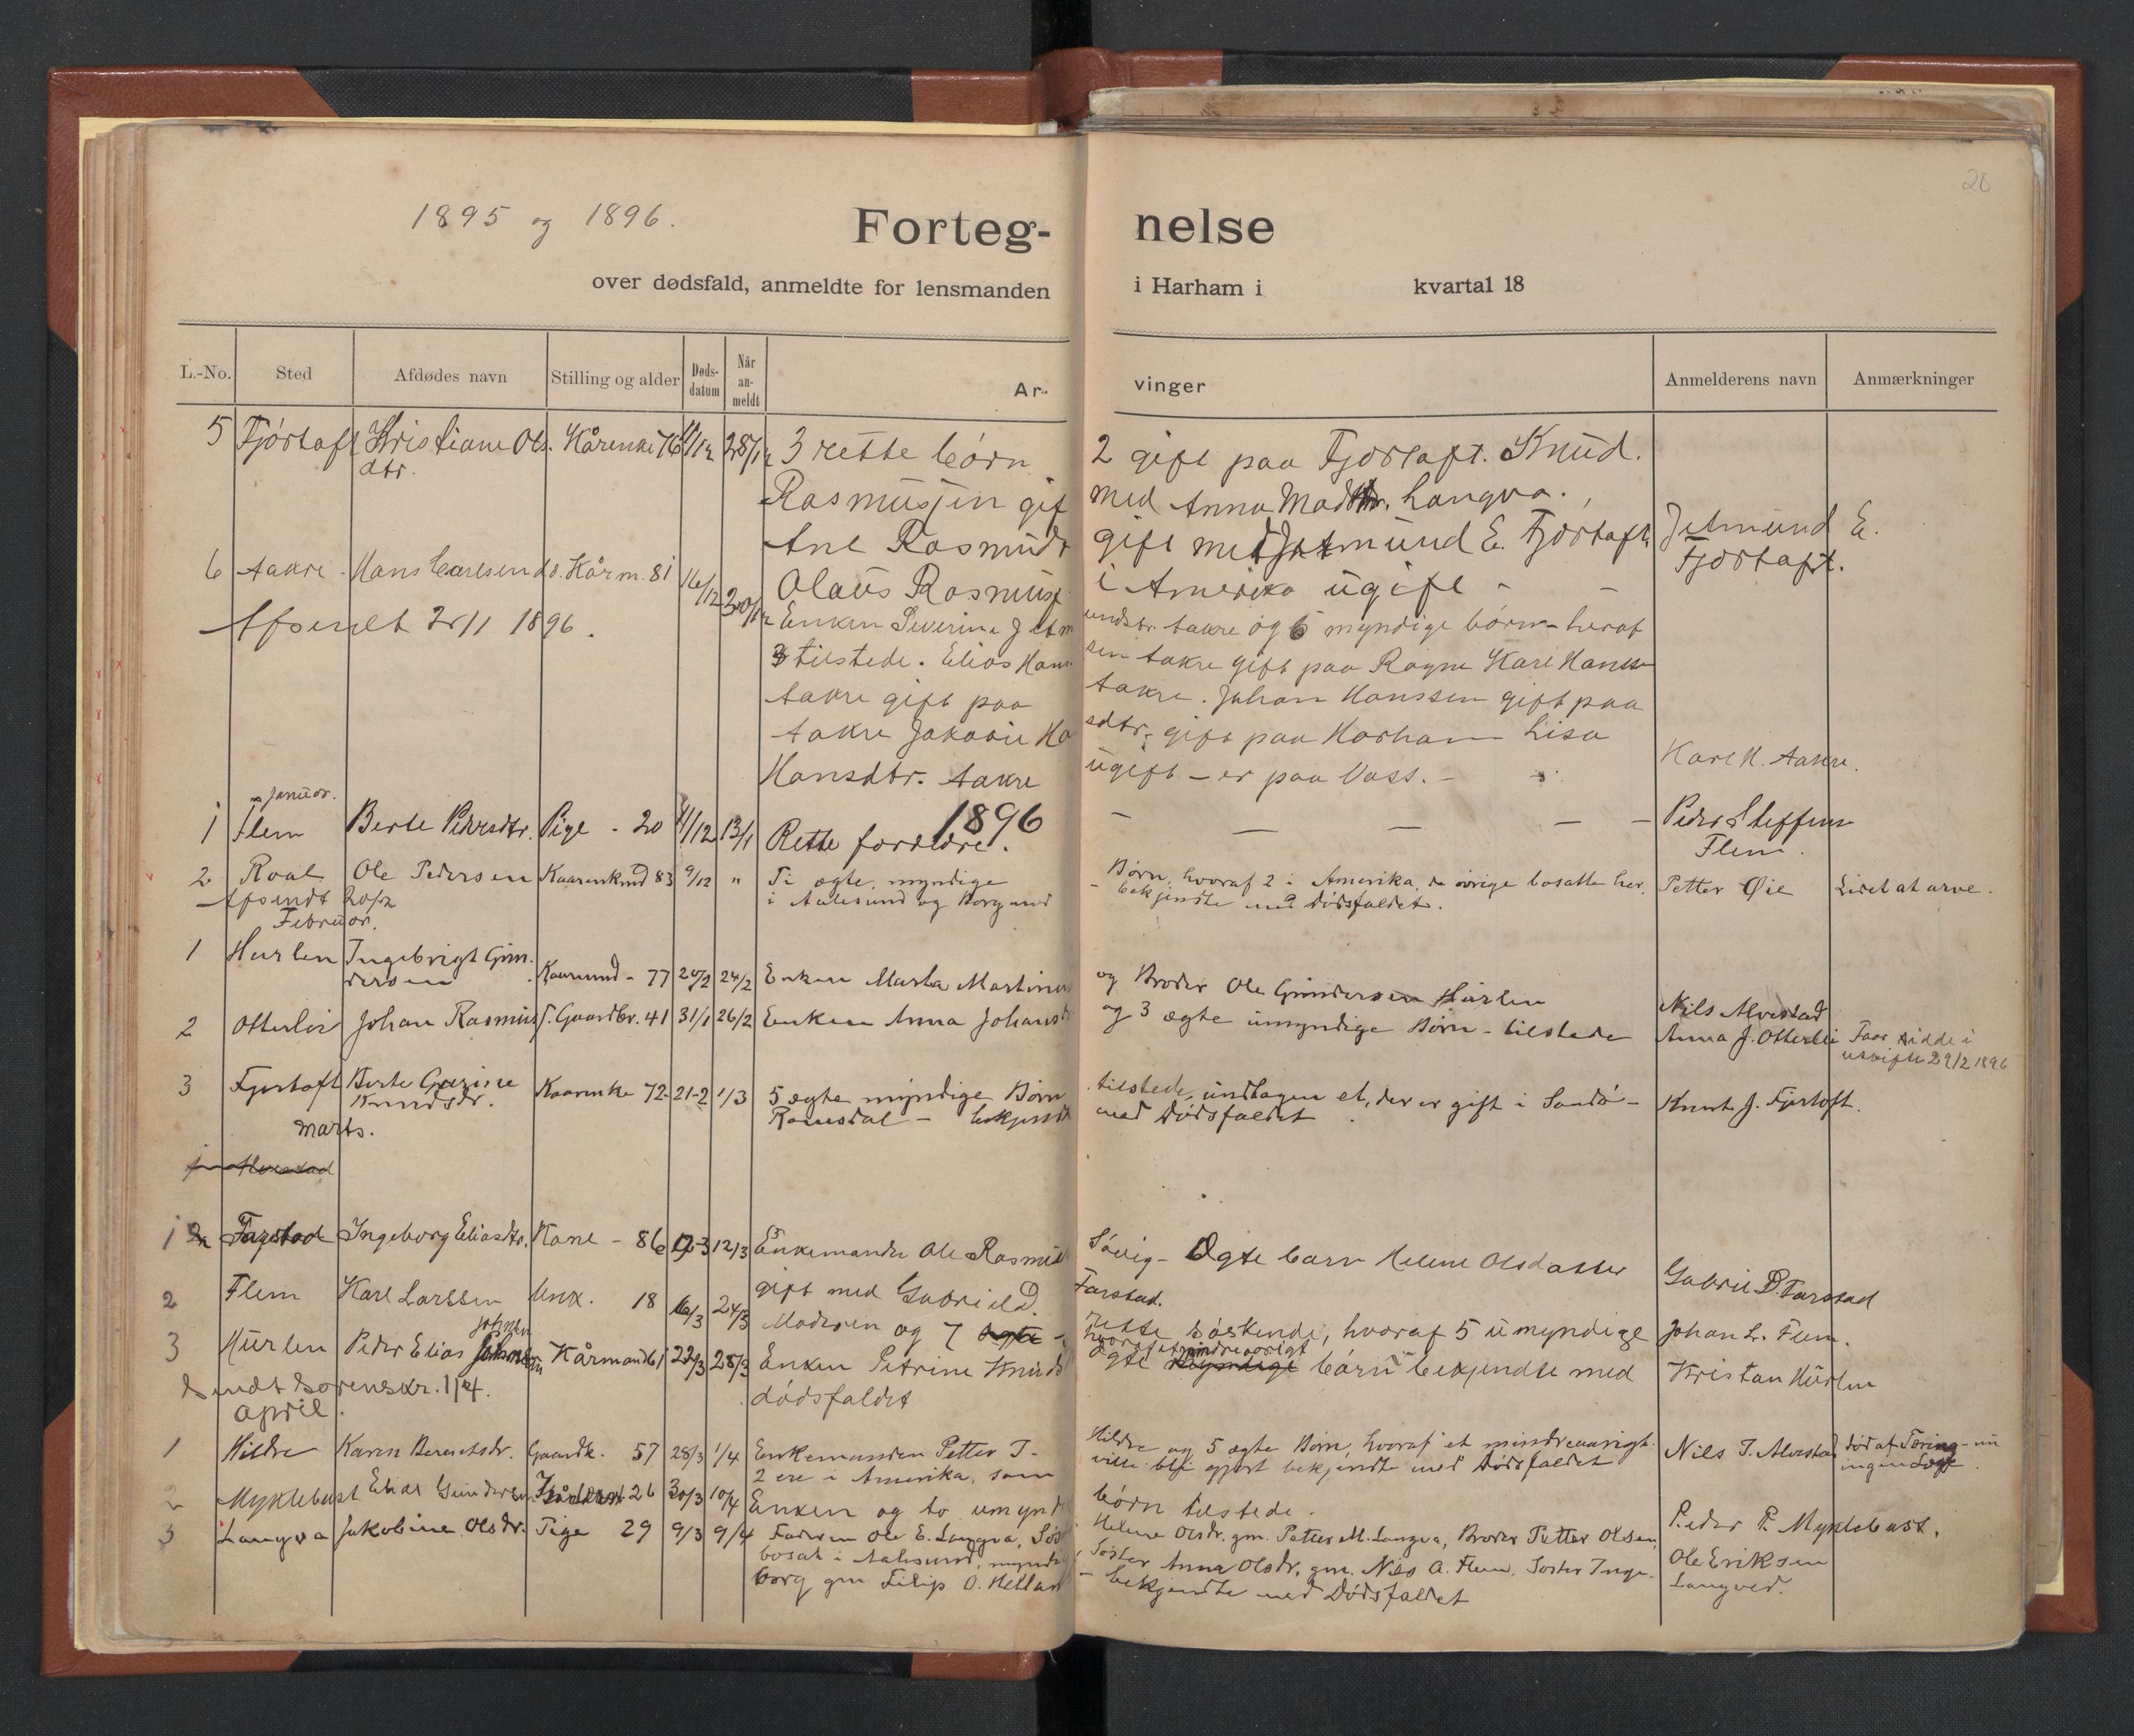 20
1895 og 1896.
Forteg- nelse
over dødsfald, anmeldte for lensmanden i Harham i kvartal 18
L.-No. Sted Afdødes navn Stilling og alder Døds-datum Når an-meldt Ar- vinger Anmelderens navn Anmærkninger
5 Fjørtaft Kristiane Ols. Kårenke 76 28/12 3 rette børn 2 gift paa Fjørtaft. Knud.
dtr.
Rasmussen gif med Anna Langva.
Ane Rasmusd gift med Jetmund E. Fjørtaft Jetmund E.
Fjørtaft.
6 Aakre Hans Carlsen Kårm. 81 16/12 30/12 Olaus Rasmuss i Amerika ugift -
Afsendt 2/1 1896. Enken Severine Jetm undsdtr. Aakre og 6 myndige børn - heraf
3 tilstede. Elias Hans sen Aakre gift paa Rogne Karl Hanssen
Aakre gift paa Aakre. Johan Hanssen gift paa
Aakre Jakobie Ha sdtr. gift paa Harham - Lisa
Hansdtr. Aakre ugift - er paa Vass. - Karl H. Aakre.
Januar. 1896
1 Flem Berte Pedersdtr. Pige - 20 11/12 13/1 Rette forældre. — — — — — Peder Steffens
Flem.
2 Roal Ole Pedersen Kaarenkmd 83 9/12 " Ti ægte, myndige Børn, hvoraf 2 i Amerika, de øvrige bosatte her, Petter Øie Lidet at arve.
Afsendt 20/2 i Aalesund og Borgund - bekjendte med Dødsfaldet.
Februar.
1 Hurlen Ingebrigt Gun-
dersen Kaarmand - 77 20/2 24/2 Enken Marta Martinus og Broder Ole Gundersen Hurlen Nils Alvestad
2 Otterlei Johan Rasmuss. Gaardbr. 41 31/1 26/2 Enken Anna Johansd og 3 ægte umyndige Børn - tilstede Anna J. Otterlei Faar sidde i
uskifte 29/2 1896
3 Fjørtoft Berte Gurine
Knudsdr. Kaarenke 72 21-2 1/3 5 ægte myndige Børn tilstede, undtagen et, der er gift i Sandø- Knut J. Fjørtoft.
Romsdal - bekjendt med Dødsfaldet
Marts.
1 Alvestad
1 2 Farstad Ingeborg Eliasdtr. Kone - 86 12/3 Enkemanden Ole Rasmus Søvig - Ægte barn Helene Olsdatter Gabriel D. Farstad
gift med Gabriel D. Farstad.
2 Flem Karl Larssen Unk. 18 16/3 24/3 Moderen og 7 ægte - rette søskende, hvoraf 5 umyndige Johan L. Flem.
Johnsen hvoraf et mindreaarigt
3 Hurlen Peder Elias Kårmand 61 22/3 28/3 Enken Petrine Knuds ægte myndige børn bekjendte med Kristan Hurlen
Sendt Sorenskr. 1/4. dødsfaldet
April.
1 Hildre Karen Berentsdr. Gaardk. 57 28/3 1/4 Enkemanden Petter J. Hildre og 5 ægte Børn, hvoraf et mindreaarigt. Nils J. Alvestad død af Tæring - nu
2 ere i Amerika, som ville bli gjort bekjendte med Dødsfaldet ingen Læge
2 Myklebust Elias Gundersen 26 30/3 10/4 Enken og to umynd børn tilstede. Peder P. Myklebust.
3 Langva Jakobine Olsdr. Pige 29 9/3 9/4 Faderen Ole E. Langva, Søst Helene Olsdr. gm. Petter M. Langva, Broder Petter Olsen, Ole Eriksen
bosat i Aalesund, myndig Søster Anna Olsdr. gm. Nils A. Flem, Søster Inge- Langved.
borg gm. Filip O. Helland - bekjendte med Dødsfaldet